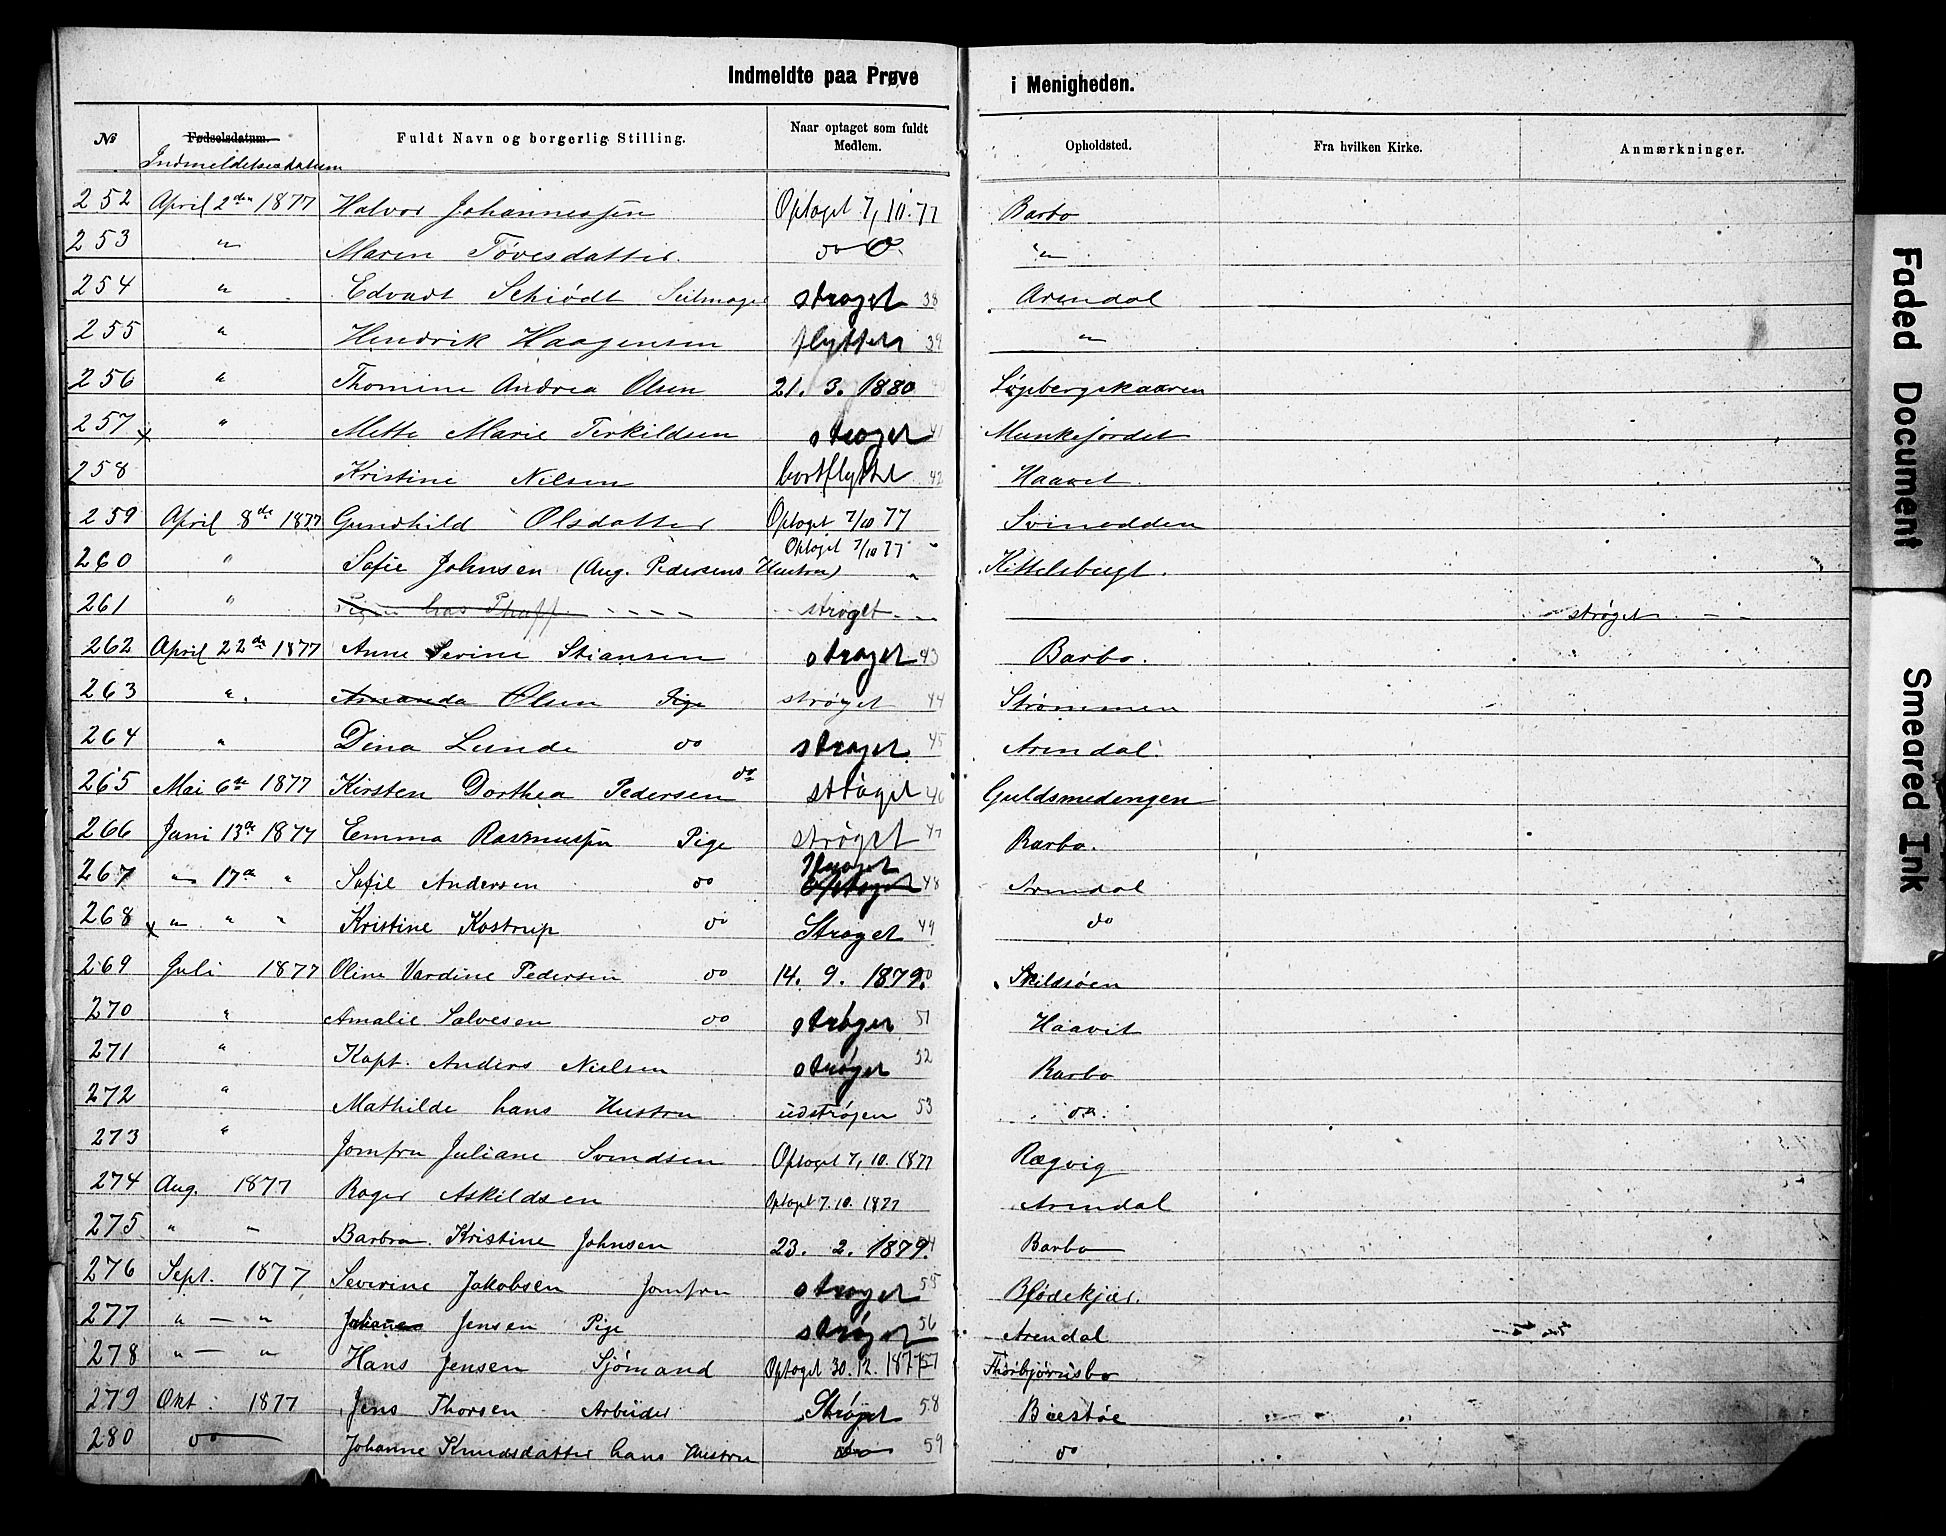 Indmeldte paa Prøve i Menigheden.
№ Fødselsdatum. Fuldt Navn og borgerlig Stilling. Naar optaget som fuldt Medlem. Opholdsted. Fra hvilken Kirke. Anmærkninger.
Indmeldelsesdatum
252 April 2den 1877 Halvor Johannessen Optaget 7, 10. 77 Barbo
253 " Maren Tovesdatter do "
254 " Edvadt Schiødt Seilmager strøget 38 Arendal
255 " Hendrik Haagensen flyttet 39 "
256 " Thomine Andrea Olsen 21. 3. 1880 Løgbergskaaren
257 x " Mette Marie Terkildsen strøget 41 Munkejordet
258 Kristine Nilsen bortflyttet 42 Haavet
259 April 8de 1877 Gundhild Olsdatter Optaget 7/10 77 Svinodden
260 " Sofie Johnsen (Aug. Pedersens Hustru) Optaget 7/10 77 " Kittelsbugt.
261 " strøget strøget
262 April 22de 1877 Anne Severine Stiansen strøget 43 Barbo.
263 " Amanda Olsen Pige strøget 44 Strømmen
264 " Dina Lunde do strøget 45 Arendal
265 Mai 6te 1877 Kirsten Dorthea Pedersen do strøget 46 Guldsmedengen
266 Juni 13de 1877 Emma Rasmussen Pige strøget 47 Barbo.
267 " 17de " Sofie Andersen do Strøget 48 Arendal
268 x " " " Kristine Kostrup do Strøget 49 do
269 Juli 1877 Oline Vardine Pedersen do 14. 9. 1879. 50 Skildsøen
270 " Amalie Salvesen do strøget 51 Haavet
271 " Kapt. Anders Nielsen strøget 52 Barbo
272 " Mathilde hans Hustru udstrøgen 53 do.
273 " Jomfru Juliane Svendsen Optaget 7, 10. 1877 Rægvig
274 Aug. 1877 Roger Askildsen Optaget 7.10. 1877 Arendal
275 " " Barbra Kristine Johnsen 23. 2. 1879. 54 Barbo
276 Sept. 1877 Severine Jakobsen Jomfru strøget 55 Blødekjær.
277 " — " Johanne Jensen Pige strøget 56 Arendal
278 " — " Hans Jensen Sjømand Optaget 30. 12. 1877 57 Thorbjørnsbo
279 Okt. 1877 Jens Thorsen Arbeider Strøget 58 Biestøe
280 do Johanne Knudsdatter hans Hustru do 59 do
Faded Document
Smeared Ink